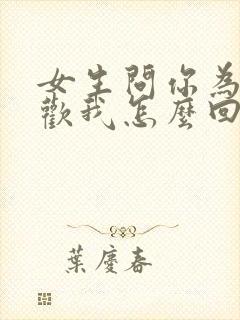 女生問你為
歡我怎麼回
葉慶春